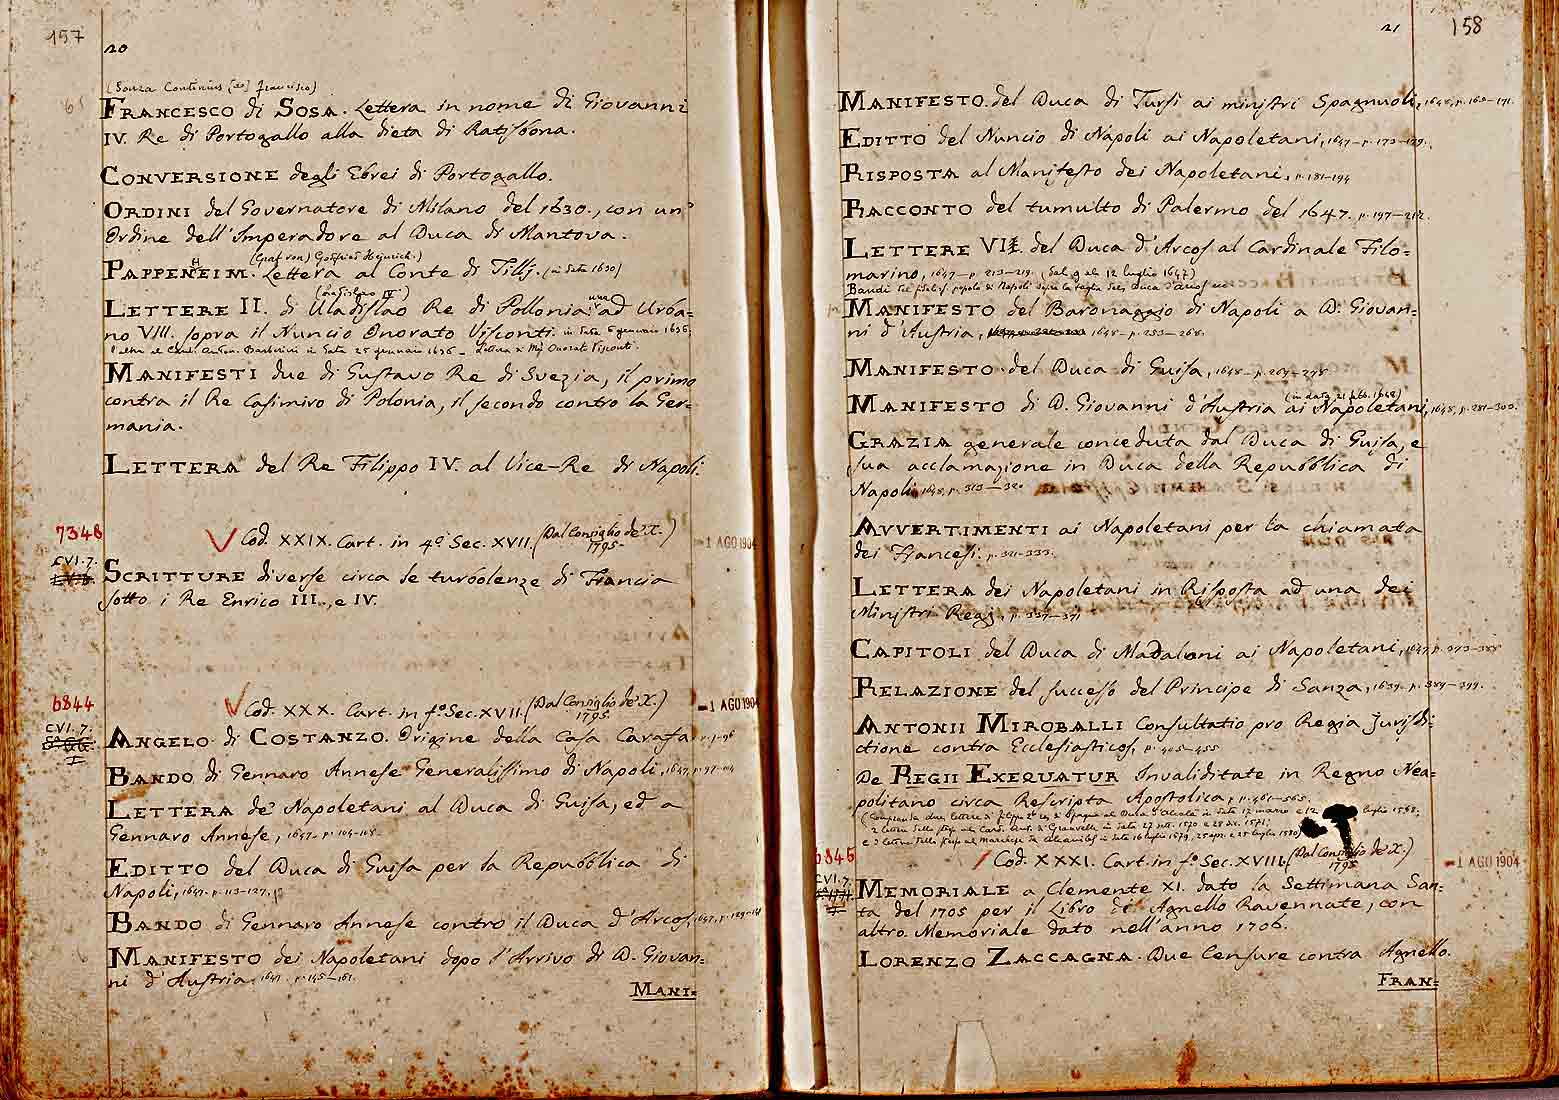 157
20
(Souza Coutinius [de] Francisco)
FRANCESCO di SOSA. Lettera in nome di Giovanni
IV. Re di Portogallo alla dieta di Ratisbona.
CONVERSIONE degli Ebrei di Portogallo.
ORDINI del Governatore di Milano del 1630., con un'
Ordine dell'Imperadore al Duca di Mantova.
(Graf von) Gottfried Heinrich.)
PAPPENHEIM. Lettera al Conte di Tillj. (in data 1630)
(Ladislao IV)
LETTERE II. di Uladislao Re di Pollonia: una ad Urba=
no VIII. sopra il Nuncio Onorato Visconti. in data 6 gennaio 1636,
l'altra al Card. Anton. Barberini in data 25 gennaio 1636 – Lettera di Mg Onorato Visconti.
MANIFESTI due di Gustavo Re di Svezia, il primo
contra il Re Casimiro di Polonia, il secondo contro la Ger=
mania.
LETTERA del Re Filippo IV. al Vice-Re di Napoli
7348
V Cod. XXIX. Cart. in 4º. Sec. XVII. (Dal Consiglio de' X.)
1795
-1 AGO 1904
CVI.7.
SCRITTURE diverse circa le turbolenze di Francia
sotto i Re Enrico III., e IV.
6844
V Cod. XXX. Cart. in fº. Sec. XVII. (Dal Consiglio de' X.)
1795.
-1 AGO 1904
CVI.7.
ANGELO di COSTANZO. Origine della Casa Carafa p. 1-96
BANDO di Gennaro Annese Generalissimo di Napoli, 1647, p. 97-104
LETTERA de' Napoletani al Duca di Guisa, ed a
Gennaro Annese, 1647. p. 104-108.
EDITTO del Duca di Guisa per la Repubblica di
Napoli, 1647. p. 113-127.
BANDO di Gennaro Annese contro il Duca d'Arcos, 1647, p. 129-141
MANIFESTO dei Napoletani dopo l'Arrivo di D. Giovan=
ni d'Austria. 1647. p. 145-161.
MANI=
21
158
MANIFESTO del Duca di Tursi ai ministri Spagnuoli, 1648, p. 163-171.
EDITTO del Nuncio di Napoli ai Napoletani, 1647 – p. 173-179.
RISPOSTA al Manifesto dei Napoletani, p. 181-194
RACCONTO del tumulto di Palermo del 1647. p. 197-212.
LETTERE VII. del Duca d'Arcos al Cardinale Filo=
marino, 1647 – p. 213-219. (dal 9 al 12 luglio 1647)
MANIFESTO del Baronaggio di Napoli a D. Giovan=
ni d'Austria, 1648 – p. 253-268.
MANIFESTO del Duca di Guisa, 1648 – p. 269-278
MANIFESTO di D. Giovanni d'Austria ai Napoletani, 1648, p. 281-300.
GRAZIA generale conceduta dal Duca di Guisa, e
sua acclamazione in Duca della Repubblica di
Napoli 1648, p. 313-320
AVVERTIMENTI ai Napoletani per la chiamata
dei Francesi. p. 321-333.
LETTERA dei Napoletani in Risposta ad una dei
Ministri Regj, p. 337-371
CAPITOLI del Duca di Madaloni ai Napoletani, 1647. p. 373-388
RELAZIONE del successo del Principe di Sanza, 1639. p. 389-399.
ANTONII MIROBALLI Consultatio pro Regia jurisdi=
ctione contra Ecclesiasticos, p. 405-455
De REGII EXEQUATUR Invaliditate in Regno Nea=
politano circa Rescripta Apostolica, p. 461-565.
6845
Cod. XXXI. Cart. in fº. Sec. XVIII. (Dal Consiglio de' X.)
1795
-1 AGO 1904
CVI.7.
MEMORIALE a Clemente XI. dato la Settimana San=
ta del 1705 per il Libro di Agnello Ravennate, con
altro Memoriale dato nell'anno 1706.
LORENZO ZACCAGNA. Due Censure contra Agnello.
FRAN=